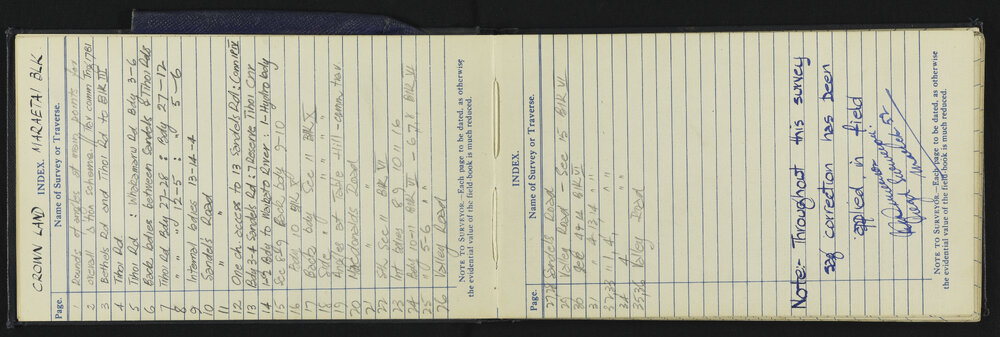 CROWN LAND INDEX. MARAETAI BLK
Page. Name of Survey or Traverse.
1 Rounds of angles at main points for
2 overall b'tion scheme // for comm Trig 1781
3 Bethels Rd and Tihoi Rd to Blk III
4 Tihoi Rd
5 Tihoi Rd : Whakamaru Rd Bdy 3-6
6 Back bodies between Sandels & Tihoi Rds
7 Tihoi Rd Bdy 27-28 : Bdy 27-12
8 " " " 12-5 : " 5-6
9 Internal bdies 13-14-4
10 Sandels Road
11 "
12 One ch. access to 13 Sandels Rd : Conn Pt IV
13 Bdy 3-4 Sandels Rd : 7 Reserve Tihoi Cnr
14 1-2 Bdy to Waikato River : 1-Hydro bdy
15 Sec 8&9 Back bdy 9-10
16 Bdy 10 Blk VI
17 Back bdy Sec 11 Blk X
18 Site " "
19 Angles at Table Hill - comm. trav
20 MacDonalds Road
21 " "
22 SR Sec 11 Blk VI
23 Int bdies 8 9 10 11 16
24 Bdy 10-11 Blk VI - 6 7 8 Blk VI
25 " 5-6 "
26 Valley Road
NOTE TO SURVEYOR.—Each page to be dated, as otherwise
the evidential value of the field-book is much reduced.
INDEX.
Page. Name of Survey or Traverse.
27,28 Sandels Road
29 Valley Road - See 15 Blk VI
30 Sec 4 14 Blk VI
31 " 4,13,14 " "
32,33 " 4, " "
34 " 4 "
35,36 Valley Road
Note:- Throughout this survey
sag correction has been
applied, in field
NOTE TO SURVEYOR.—Each page to be dated, as otherwise
the evidential value of the field-book is much reduced.